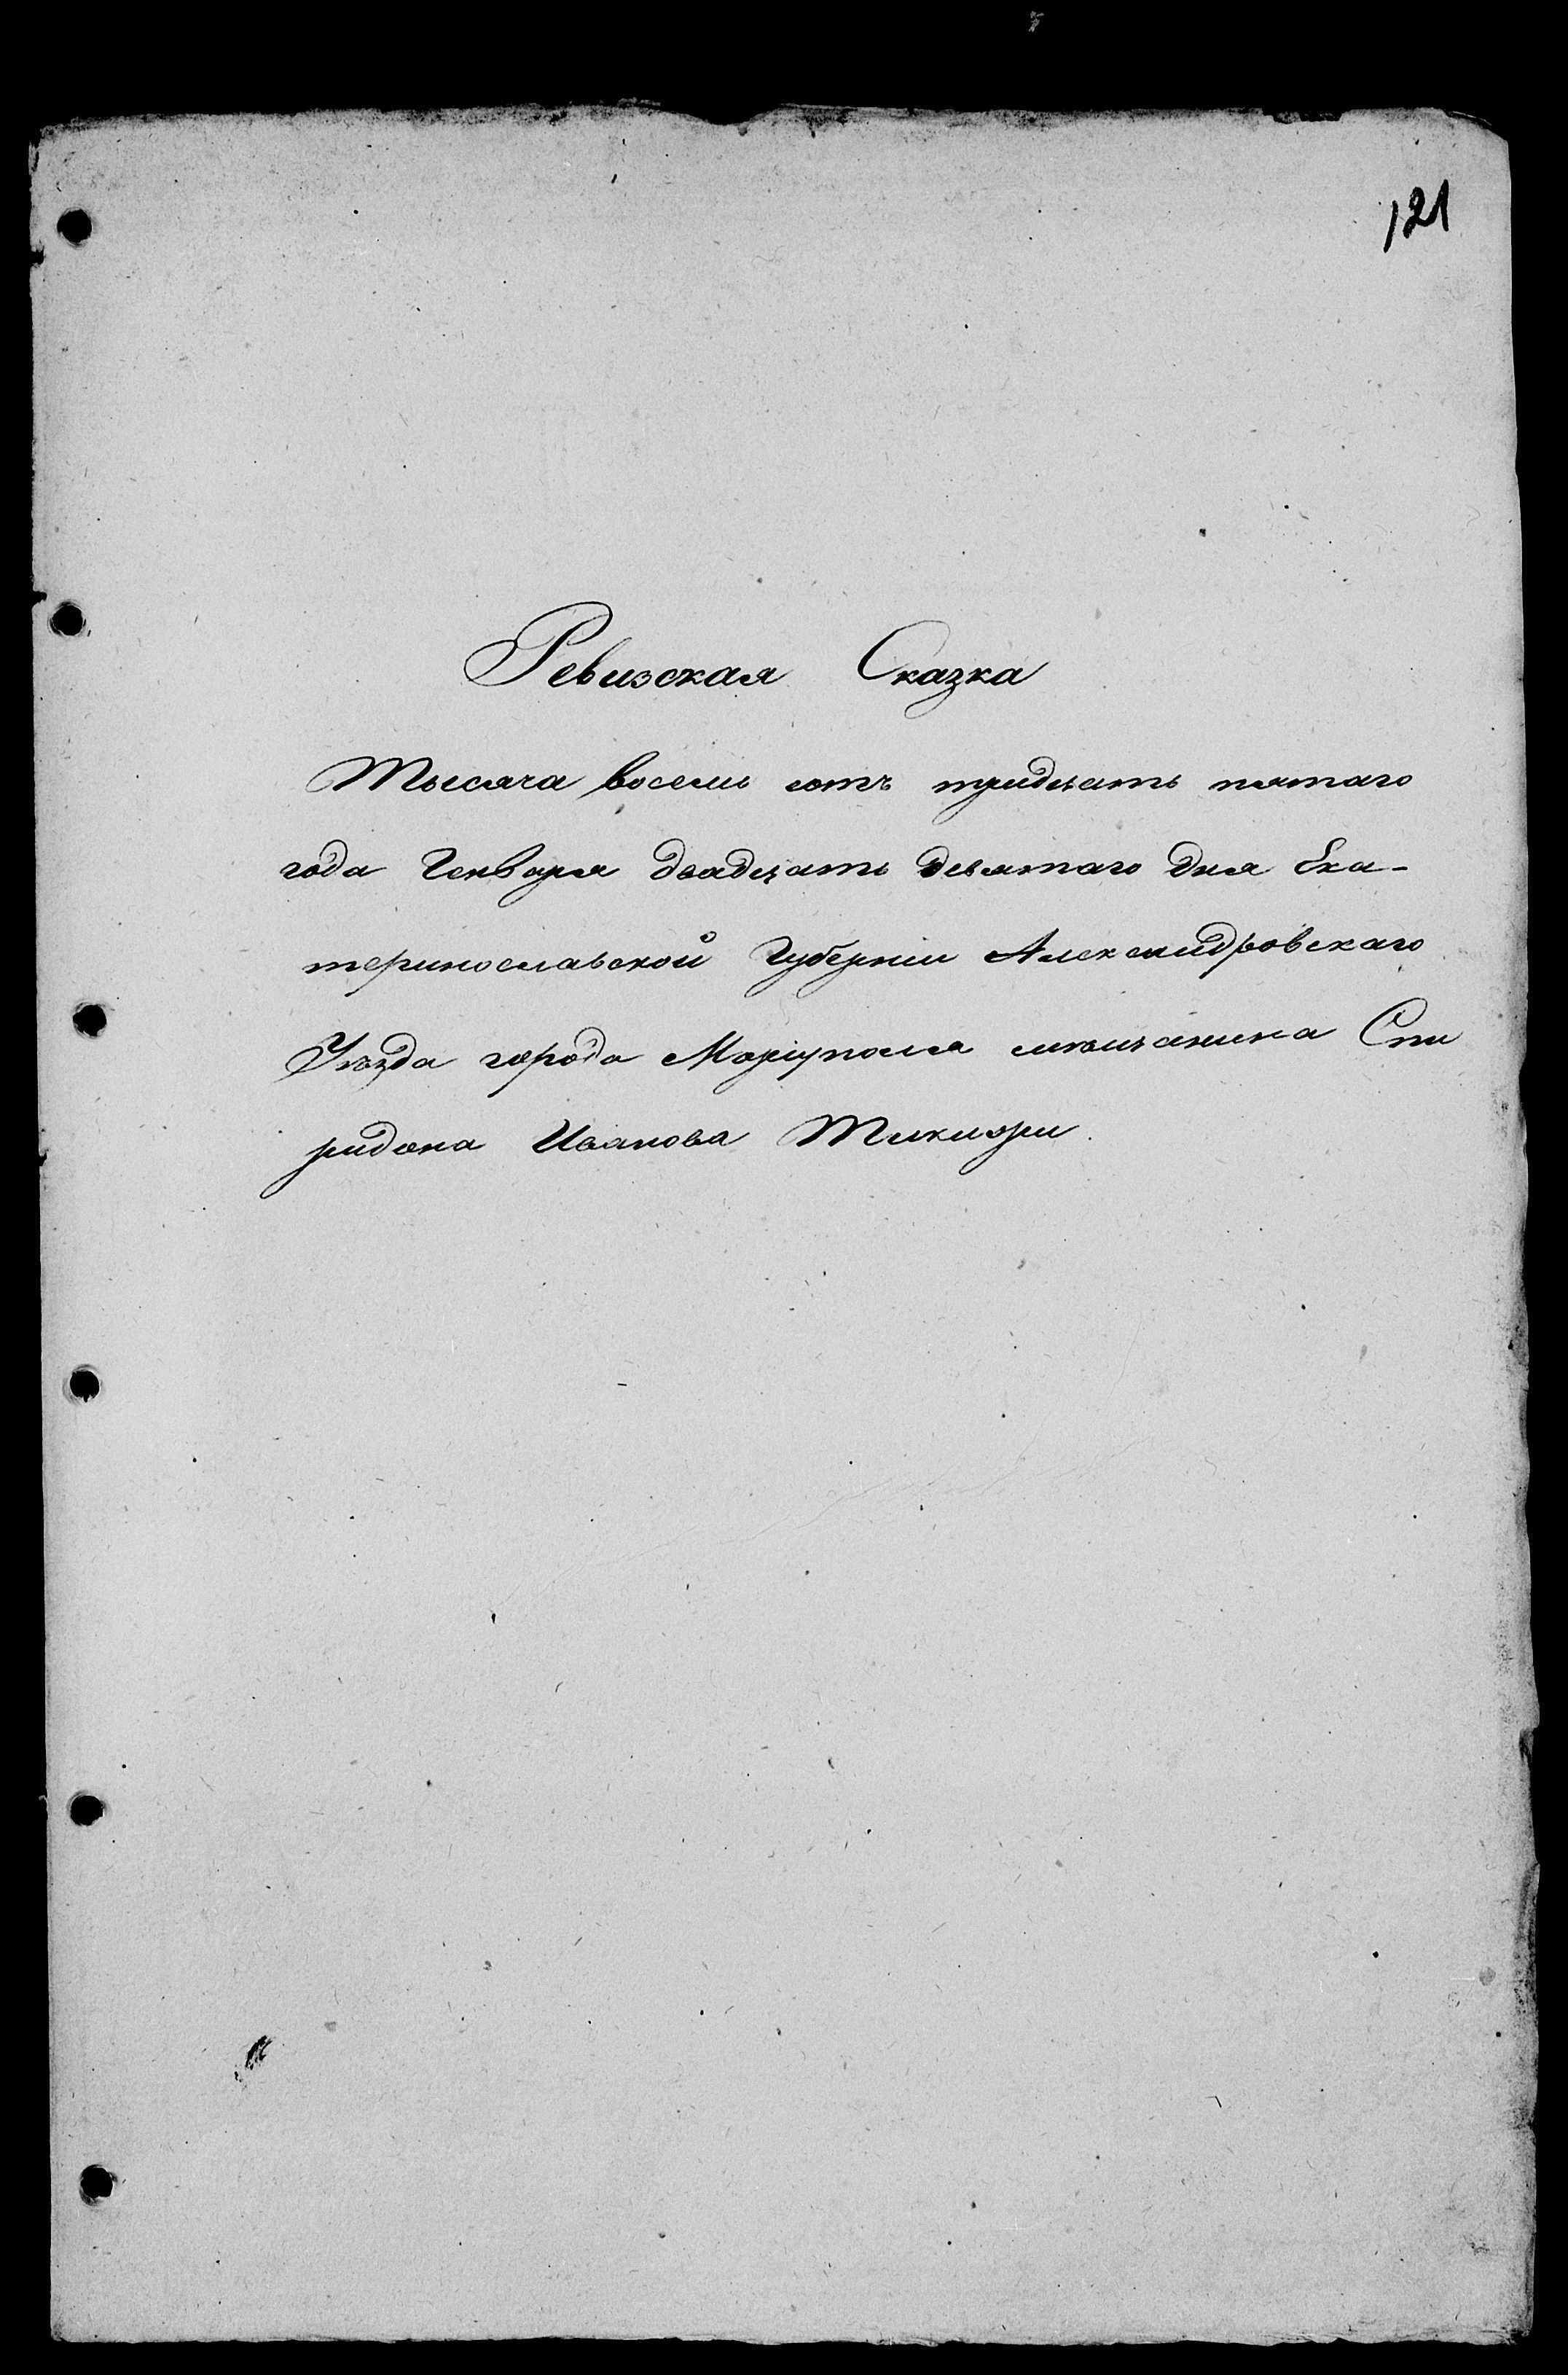 121
Ревизская Сказка
Тысяча восемь сотъ тридцать пятаго
года Генваря двадцать девятаго дня Ека-
теринославской Губерніи Александровскаго
Уѣзда города Маріуполя мѣщанина Спи
ридона Иванова